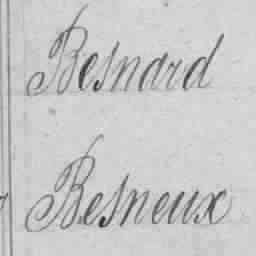 Besnard
Besneux